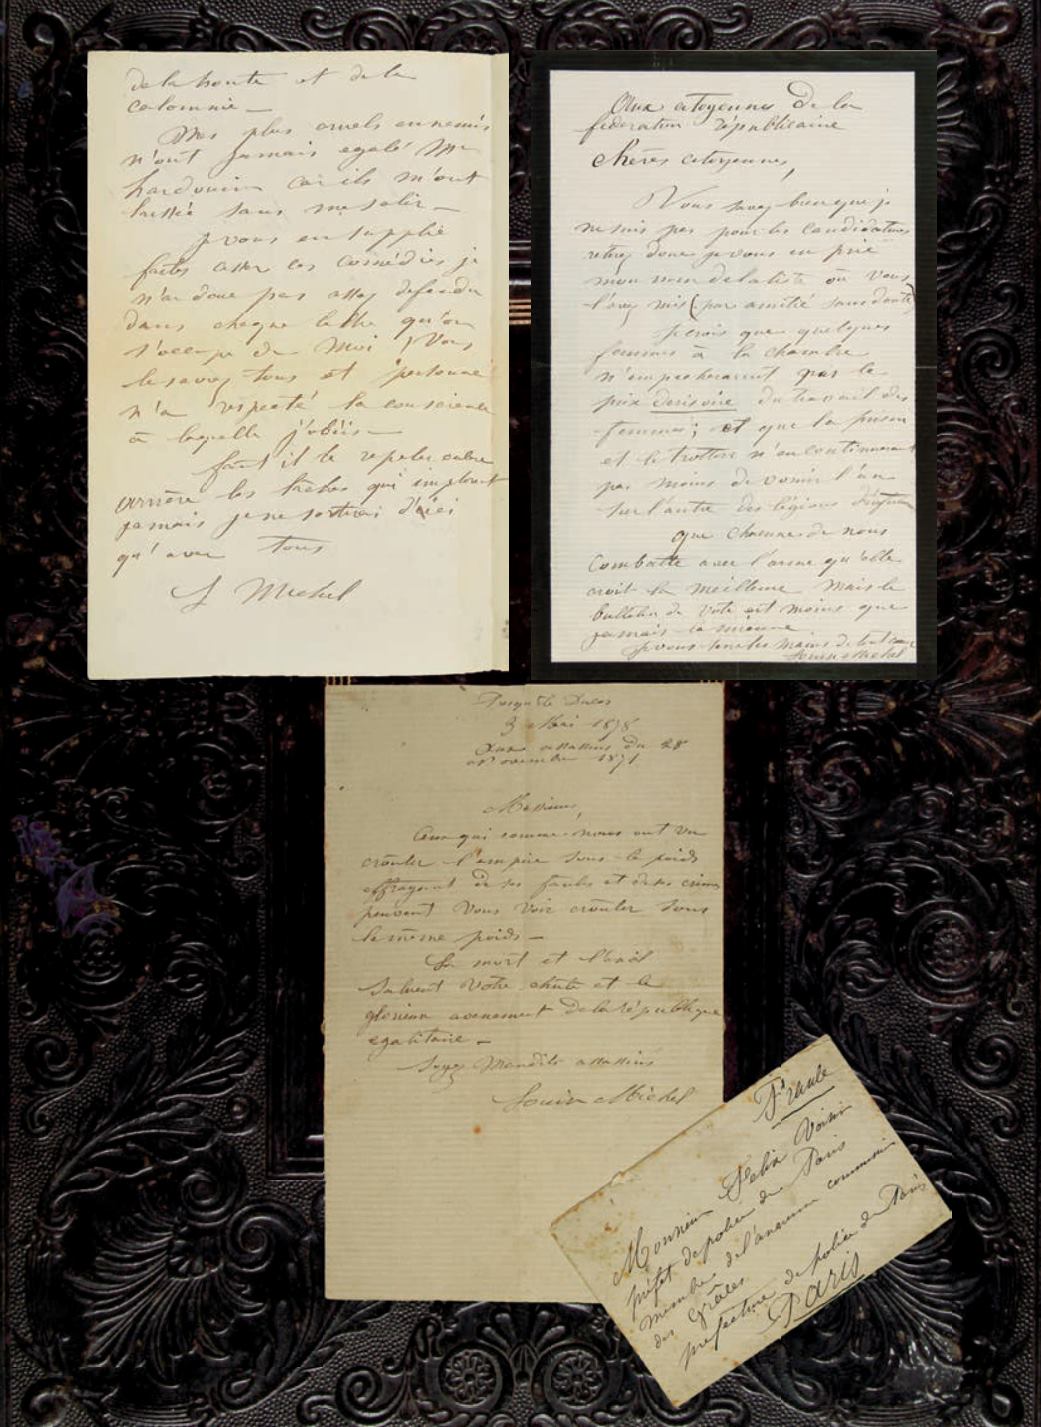 de la honte et de la
calomnie —
Mes plus cruels ennemis
n'ont jamais egalé Mme
hardouin car ils m'ont
laissée sans me salir —
je vous en supplie
faites cesser ces comédies je
n'ai donc pas assez defendu
dans chaque lettre qu'on
s'occupe de moi, Vous
le savez tous et personne
n'a respecté la conscience
à laquelle j'obéis —
faut il le repeter encore
arrière les lâches qui implorent
jamais je ne sortirai d'ici
qu'avec tous
L Michel
Aux citoyennes de la
federation républicaine
Chères citoyennes,
Vous savez bien que je
ne suis pas pour les candidatures
retirez donc je vous en prie
mon nom de la liste où vous
l'avez mis (par amitié sans doute)
je crois que quelques
femmes à la chambre
n'empecheraient pas le
prix derisoire du travail des
femmes; et que la prison
et le trottoir n'en continueraient
pas moins de vomir l'un
sur l'autre des légions d'infortunées
que chacune de nous
combatte avec l'arme qu'elle
croit la meilleure mais le
bulletin de vote est moins que
jamais la mienne
je vous serre les mains de tout coeur
Louise Michel
Presqu'île Ducos
3 Mai 1878
Aux assassins du 28
Novembre 1871
Messieurs,
Ceux qui comme nous ont vu
crouler l'empire sous le poids
effrayant de ses fautes et de ses crimes
peuvent vous voir crouler sous
le même poids —
La mort et l'exil
saluent votre chute et le
glorieux avenement de la république
egalitaire —
Soyez Maudits assassins
Louise Michel
France
Monsieur Felix Voisin
préfet de police de Paris
membre de l'ancienne commission
des grâces
prefecture de police de Paris
Paris